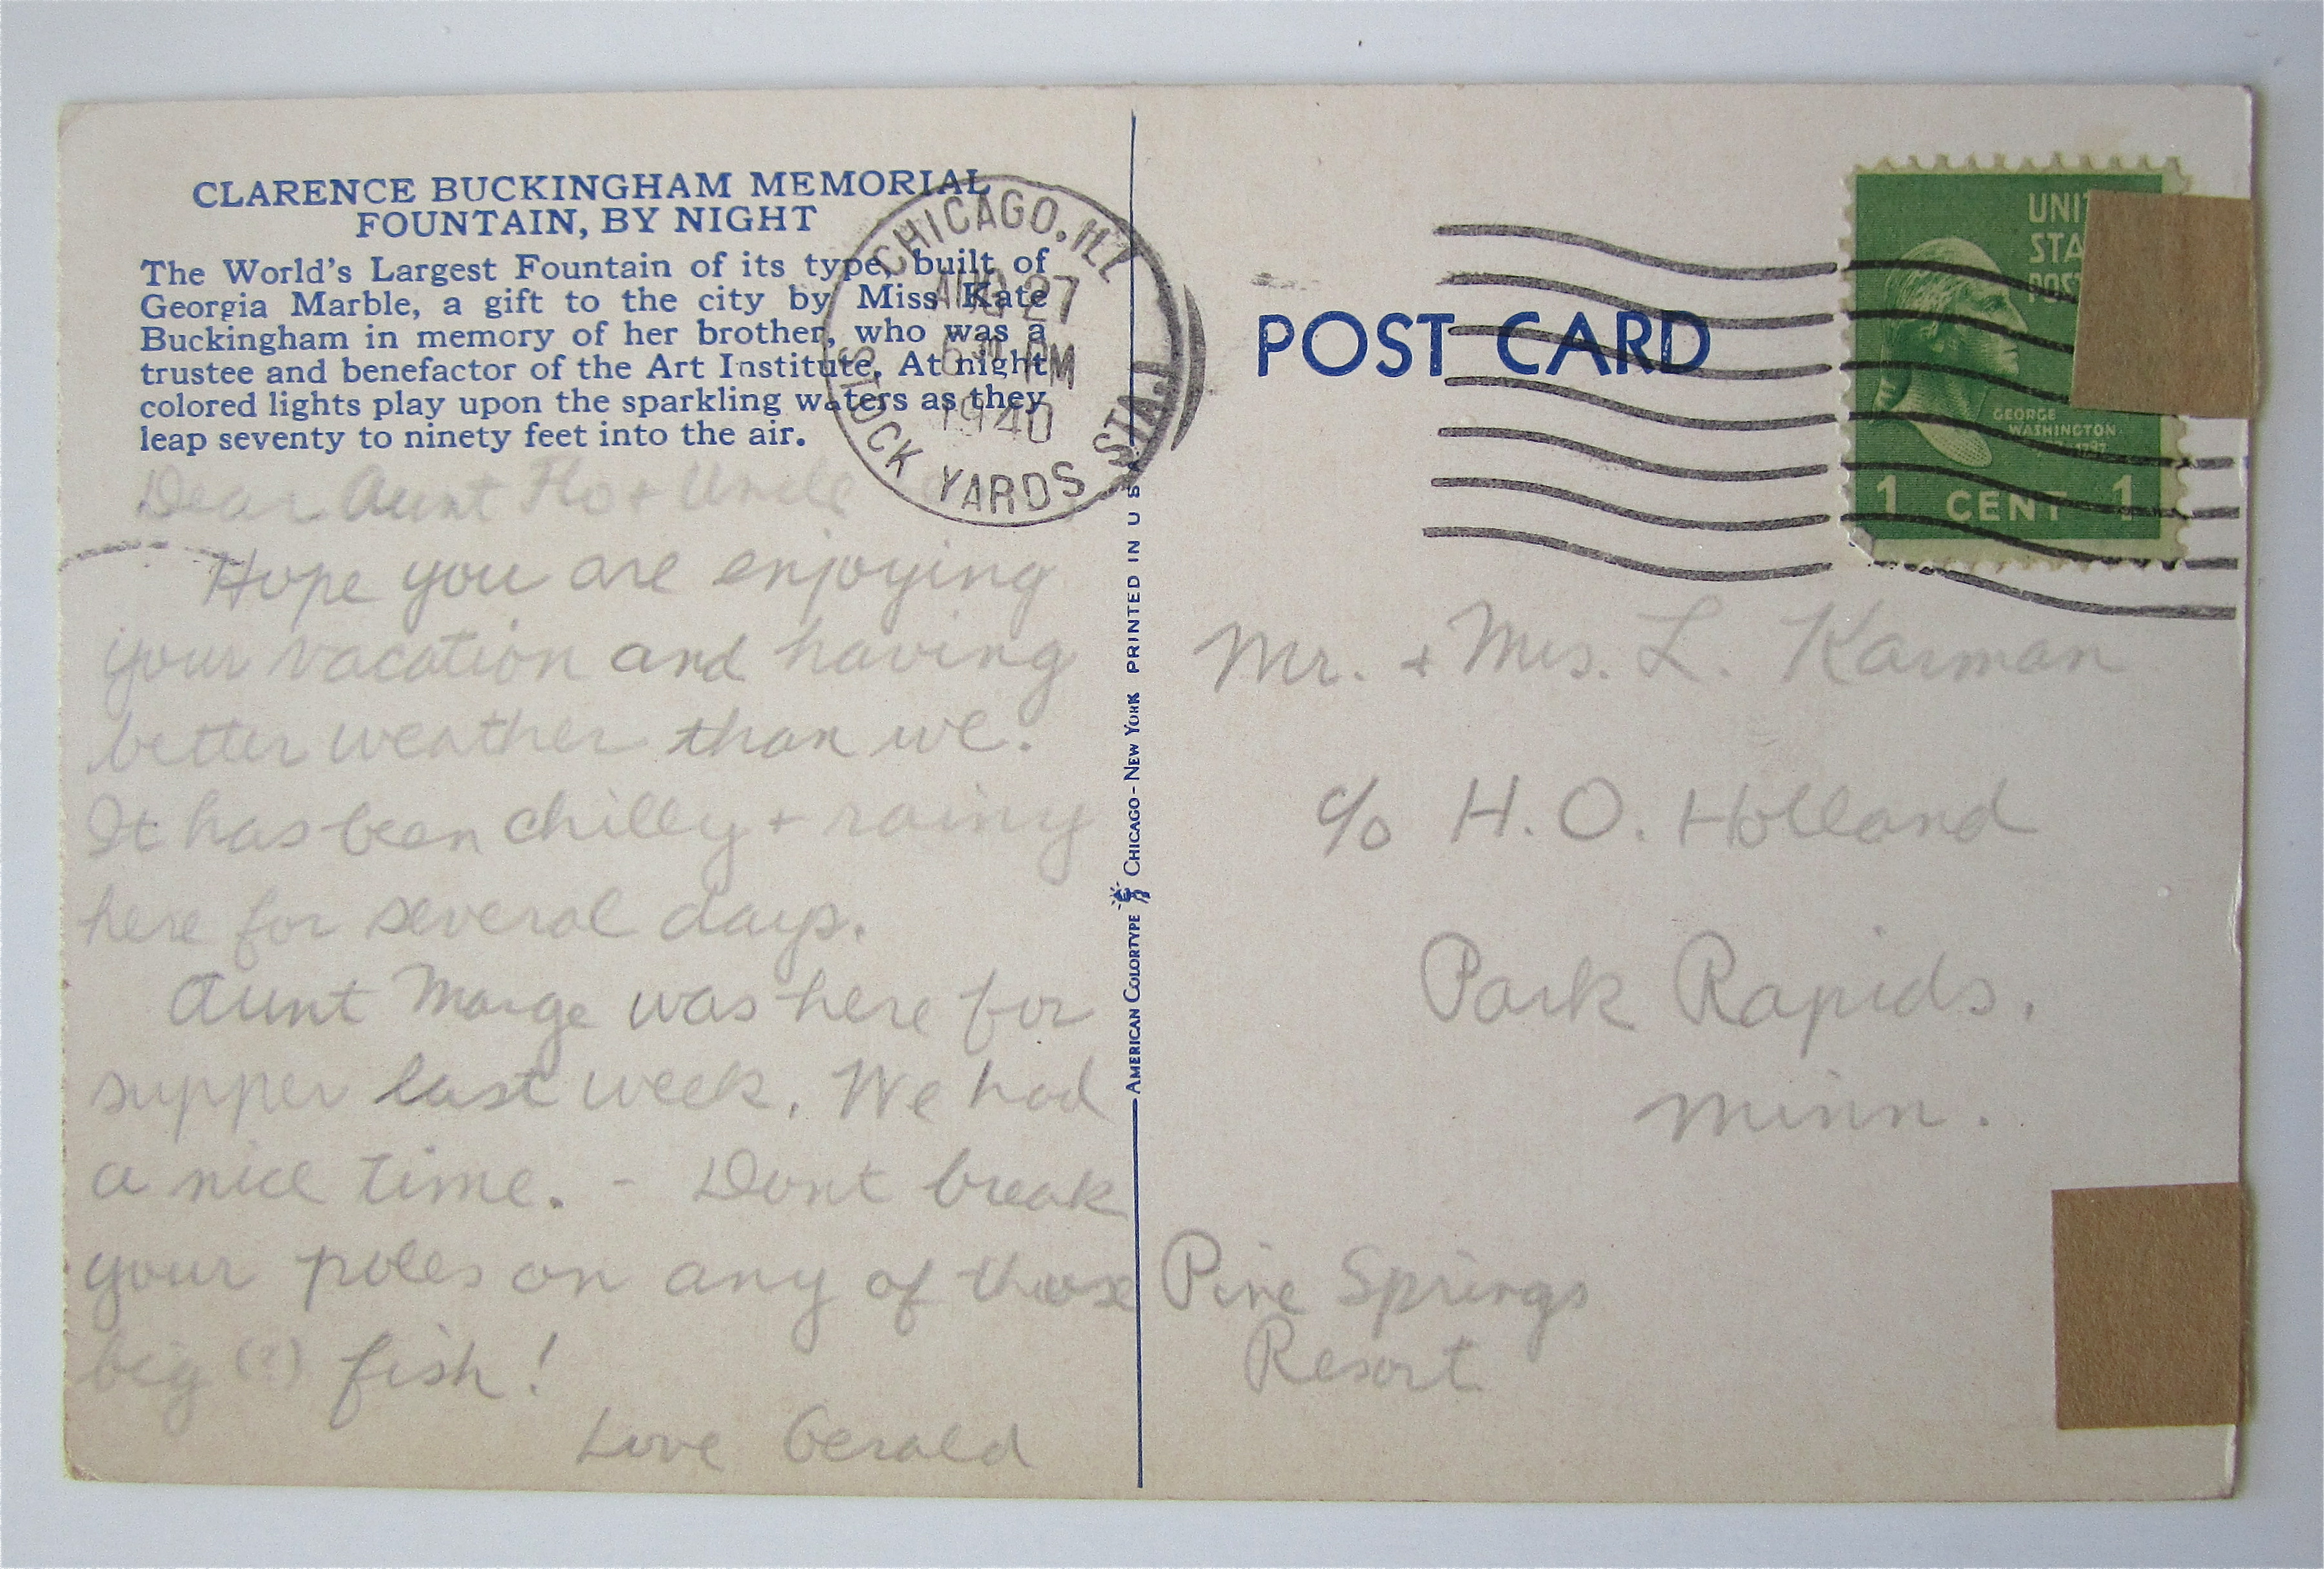 CLARENCE BUCKINGHAM MEMORIAL
FOUNTAIN, BY NIGHT
The World's Largest Fountain of its type, built of
Georgia Marble, a gift to the city by Miss Kate
Buckingham in memory of her brother, who was a
trustee and benefactor of the Art Institute. At night
colored lights play upon the sparkling waters as they
leap seventy to ninety feet into the air.
CHICAGO, ILL
AUG 27
PM
1940
STOCK YARDS STA.
Dear Aunt Flo + Uncle
Hope you are enjoying
your vacation and having
better weather than we.
It has been chilly + rainy
here for several days.
Aunt Marge was here for
supper last week. We had
a nice time. - Dont break
your poles on any of those
big (?) fish!
Love Gerald
AMERICAN COLORTYPE CHICAGO - NEW YORK PRINTED IN U S A
POST CARD
UNI
STA
POS
GEORGE
WASHINGTON
1 CENT 1
Mr. + Mrs. L. Karman
c/o H. O. Holland
Park Rapids.
Minn.
Pine Springs
Resort